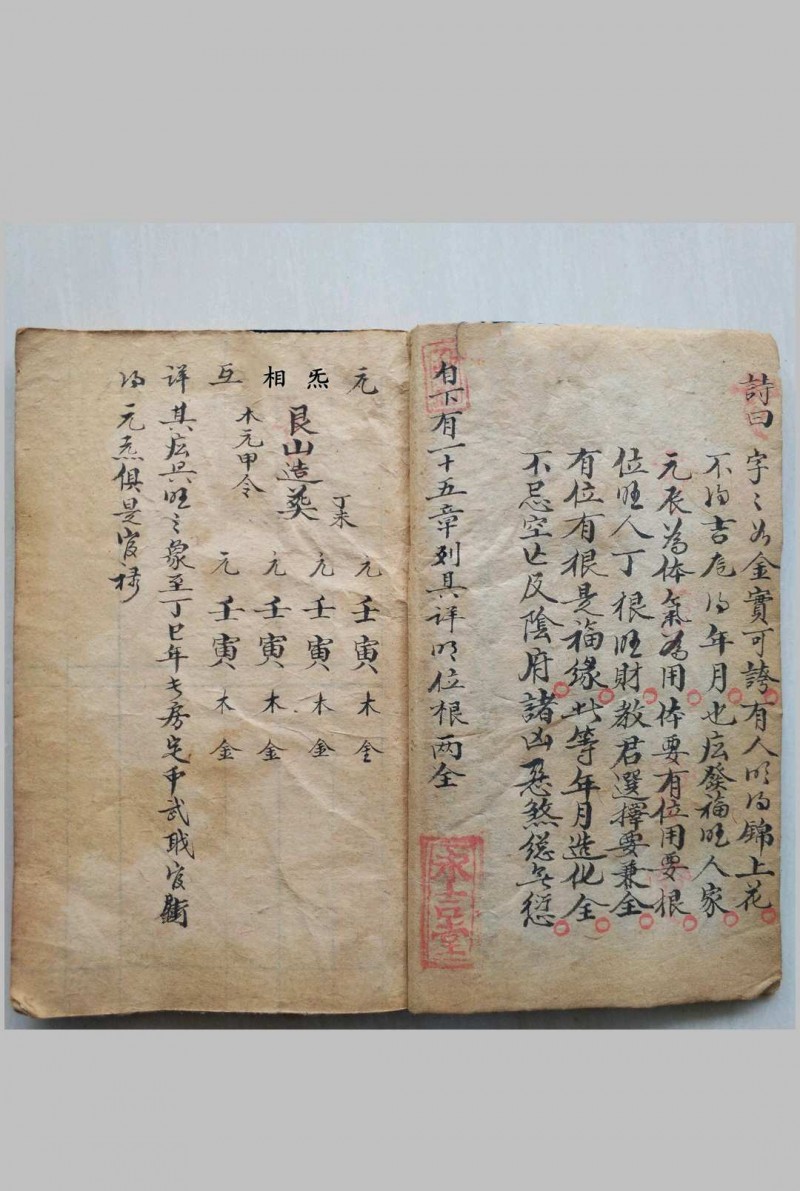 詩曰
字〻如金實可誇有人明得錦上花
不得吉龙得年月也広發福旺人家
元辰為体氣為用体要有位用要根
位旺人丁根旺財教君選擇要兼全
有位有根是福緣此等年月造化全
不忌空亡反陰府諸凶惡煞總無愆
自下有一十五章列具詳明位根两全
元 炁 相 互
艮山造葬
丁未
木元甲令
元壬寅木金
元壬寅木金
元壬寅木金
元壬寅木金
詳其広只旺之象至丁巳年長房定中武职官銜
得元炁俱是官祿